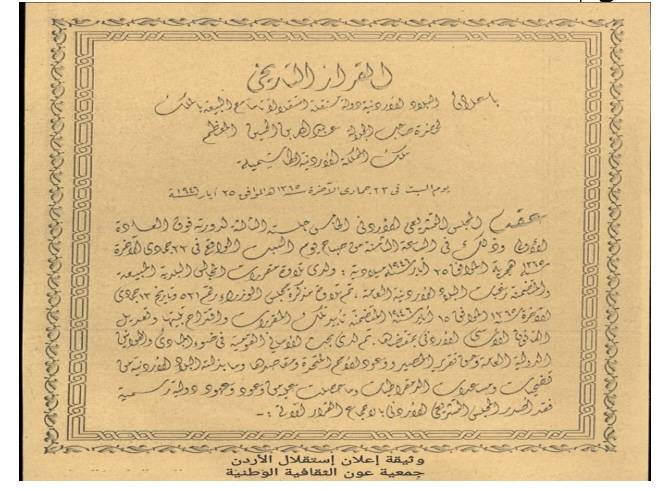 القرار التاريخي
باعلان البلاد الأردنية دولة مستقلة استقلالا تاما مع البيعة بالملك
لحضرة صاحب الجلالة عبد الله بن الحسين المعظم
ملك المملكة الأردنية الهاشمية
يوم السبت في ٢٣ جمادى الآخرة سنة ١٣٦٥ هـ الموافق ٢٥ أيار سنة ١٩٤٦
عقد المجلس التشريعي الأردني الخامس جلسته الثالثة لدورته فوق العادة
الأولى وذلك في الساعة الثامنة من صباح يوم السبت الواقع في ٢٣ جمادى الآخرة
١٣٦٥ هجرية الموافق ٢٥ أيار ١٩٤٦ ميلادية ؛ ولدى تلاوة مقررات المجالس البلدية المبلغة
والمتضمنة رغبات البلاد الأردنية العامة ، تم تلاوة مذكرة مجلس الوزراء رقم ٥٢١ وتاريخ ١٣ جمادى
الآخرة ١٣٦٥ الموافق ١٥ أيار ١٩٤٦ المتضمنة تأييد تلك المقررات واقتراح تبنيها وتعديل
القانون الأساسي الأردني بمقتضاها ، ثم لدى بحث الأماني القومية في ضوء المبادئ والحقوق
الدولية العامة وحق تقرير المصير ووعود الأمم المتحدة ومقاصدها وما بذلته البلاد الأردنية من
تضحيات ومساعدات للديمقراطيات وما حصلت عليه من وعود وعهود دولية رسمية
فقد أصدر المجلس التشريعي الأردني بالاجماع القرار الآتي :-
وثيقة إعلان إستقلال الأردن
جمعية عون الثقافية الوطنية